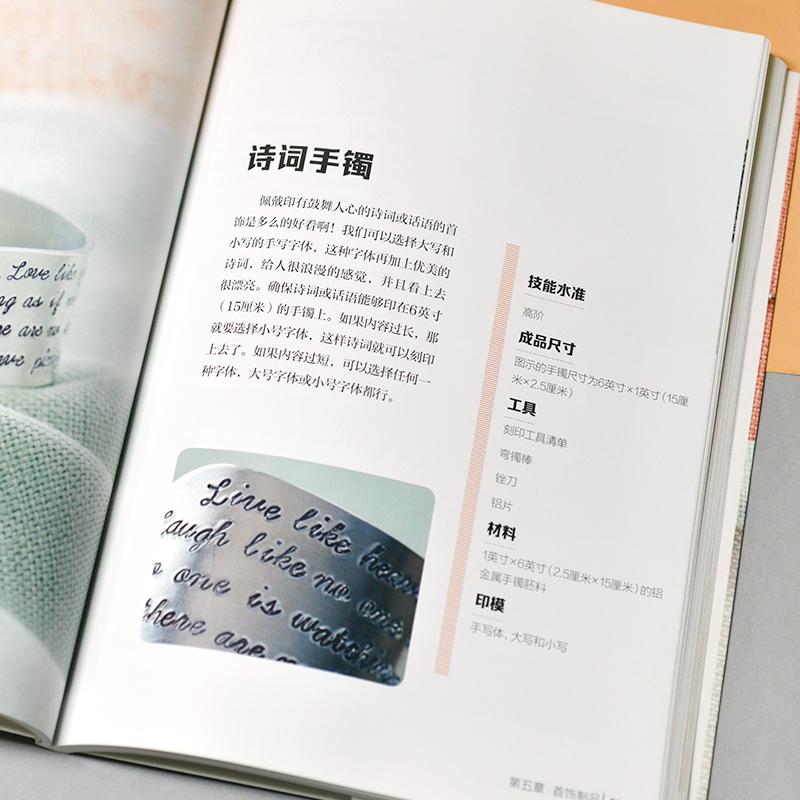 Love like
ng as if
ere are no
诗词手镯
佩戴印有鼓舞人心的诗词或话语的首
饰是多么的好看啊！我们可以选择大写和
小写的手写字体，这种字体再加上优美的
诗词，给人很浪漫的感觉，并且看上去
很漂亮。确保诗词或话语能够印在6英寸
（15厘米）的手镯上。如果内容过长，那
就要选择小号字体，这样诗词就可以刻印
上去了。如果内容过短，可以选择任何一
种字体，大号字体或小号字体都行。
Live like heav
laugh like no one
o one is watching
there are n
技能水准
高阶
成品尺寸
图示的手镯尺寸为6英寸×1英寸（15厘
米×2.5厘米）
工具
刻印工具清单
弯镯棒
锉刀
铝片
材料
1英寸×6英寸（2.5厘米×15厘米）的铝
金属手镯胚料
印模
手写体，大写和小写
第五章 首饰制品